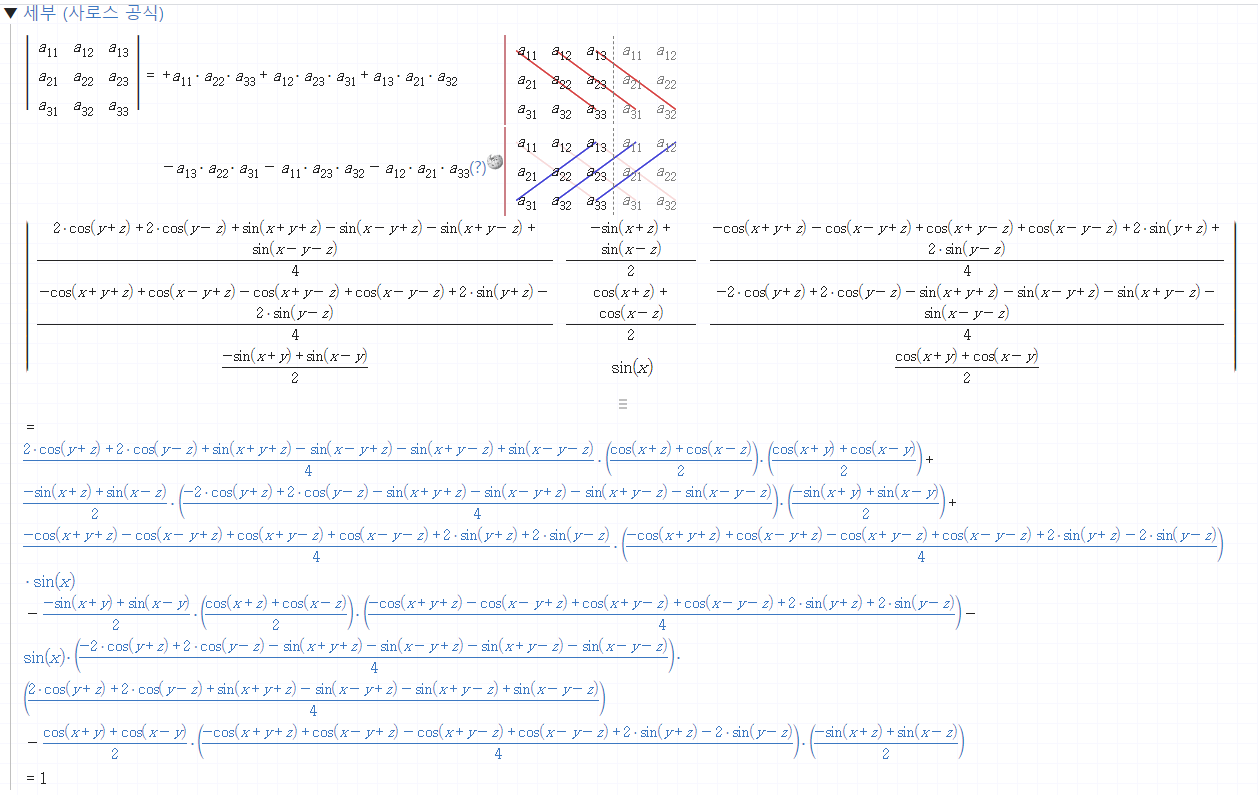 ▼ 세부 (사로스 공식)
a11 a12 a13
a21 a22 a23
a31 a32 a33
= +a11·a22·a33+a12·a23·a31+a13·a21·a32
a11 a12 a13 a11 a12
a21 a22 a23 a21 a22
a31 a32 a33 a31 a32
−a13·a22·a31− a11·a23·a32− a12·a21·a33(?)
a11 a12 a13 a11 a12
a21 a22 a23 a21 a22
a31 a32 a33 a31 a32
2·cos(y+z)+2·cos(y−z)+sin(x+y+z)−sin(x−y+z)−sin(x+y−z)+
sin(x−y−z)
4
−sin(x+z)+
sin(x−z)
2
−cos(x+y+z)−cos(x−y+z)+cos(x+y−z)+cos(x−y−z)+2·sin(y+z)+
2·sin(y−z)
4
−cos(x+y+z)+cos(x−y+z)−cos(x+y−z)+cos(x−y−z)+2·sin(y+z)−
2·sin(y−z)
4
cos(x+z)+
cos(x−z)
2
−2·cos(y+z)+2·cos(y−z)−sin(x+y+z)−sin(x−y+z)−sin(x+y−z)−
sin(x−y−z)
4
−sin(x+y)+sin(x−y)
2
sin(x)
cos(x+y)+cos(x−y)
2
=
2·cos(y+z)+2·cos(y−z)+sin(x+y+z)−sin(x−y+z)−sin(x+y−z)+sin(x−y−z)/4·(cos(x+z)+cos(x−z)/2)·(cos(x+y)+cos(x−y)/2)+
−sin(x+z)+sin(x−z)/2·(−2·cos(y+z)+2·cos(y−z)−sin(x+y+z)−sin(x−y+z)−sin(x+y−z)−sin(x−y−z)/4)·(−sin(x+y)+sin(x−y)/2)+
−cos(x+y+z)−cos(x−y+z)+cos(x+y−z)+cos(x−y−z)+2·sin(y+z)+2·sin(y−z)/4·(−cos(x+y+z)+cos(x−y+z)−cos(x+y−z)+cos(x−y−z)+2·sin(y+z)−2·sin(y−z)/4)
·sin(x)
−−sin(x+y)+sin(x−y)/2·(cos(x+z)+cos(x−z)/2)·(−cos(x+y+z)−cos(x−y+z)+cos(x+y−z)+cos(x−y−z)+2·sin(y+z)+2·sin(y−z)/4)−
sin(x)·(−2·cos(y+z)+2·cos(y−z)−sin(x+y+z)−sin(x−y+z)−sin(x+y−z)−sin(x−y−z)/4)·
(2·cos(y+z)+2·cos(y−z)+sin(x+y+z)−sin(x−y+z)−sin(x+y−z)+sin(x−y−z)/4)
−cos(x+y)+cos(x−y)/2·(−cos(x+y+z)+cos(x−y+z)−cos(x+y−z)+cos(x−y−z)+2·sin(y+z)−2·sin(y−z)/4)·(−sin(x+z)+sin(x−z)/2)
=1